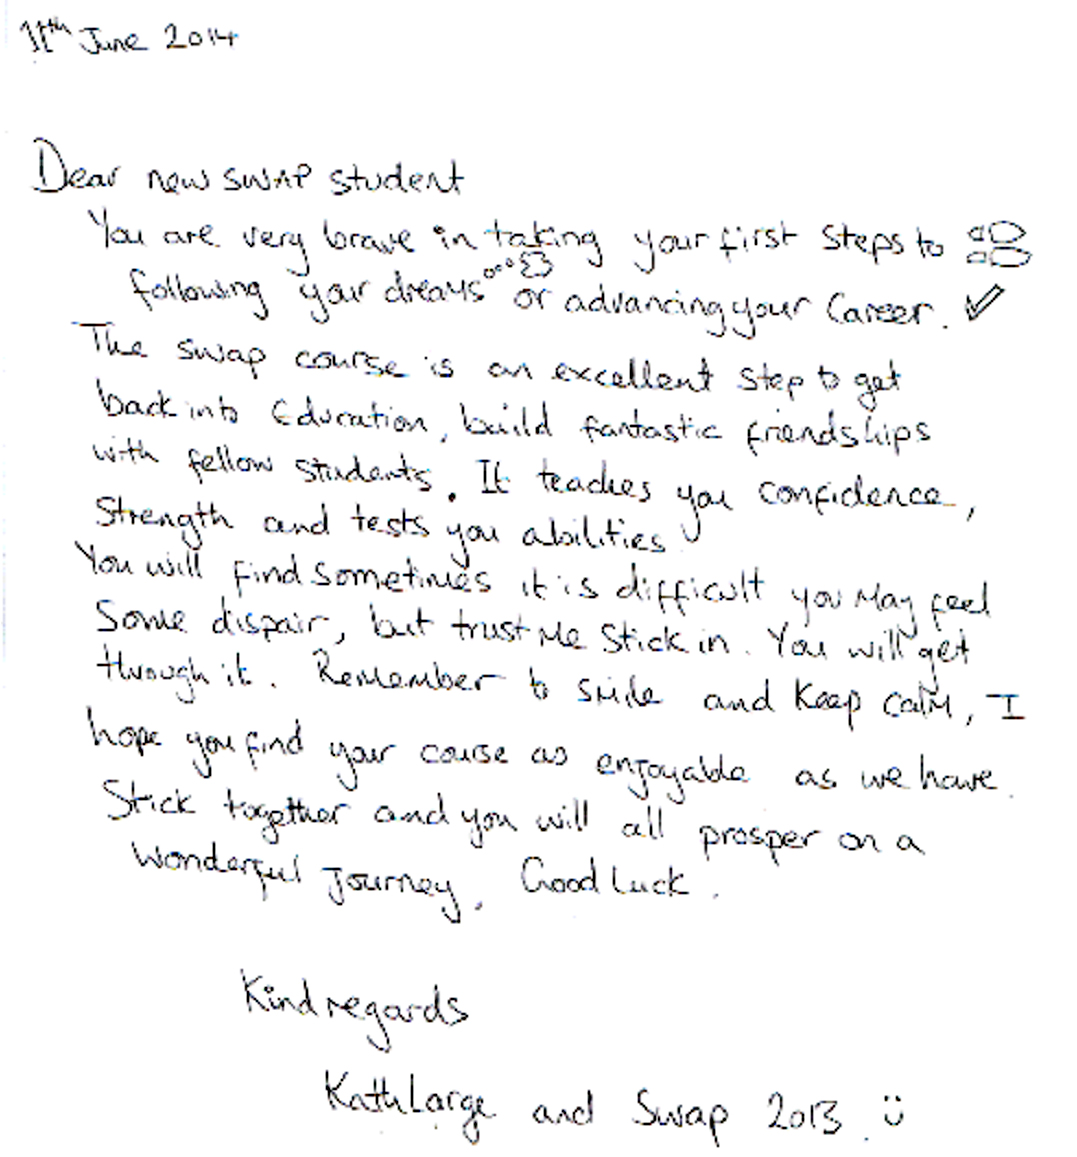 11th June 2014
Dear new SWAP student
You are very brave in taking your first steps to
following your dreams or advancing your Career.
The swap course is an excellent step to get
back into Education, build fantastic friendships
with fellow students. It teaches you confidence,
Strength and tests you abilities
You will find sometimes it is difficult you May feel
Some dispair, but trust Me Stick in. You will get
through it. Remember to smile and Keep calm, I
hope you find your course as enjoyable as we have.
Stick together and you will all prosper on a
Wonderful Journey. Good Luck.
Kind regards
Kath Large and Swap 2013